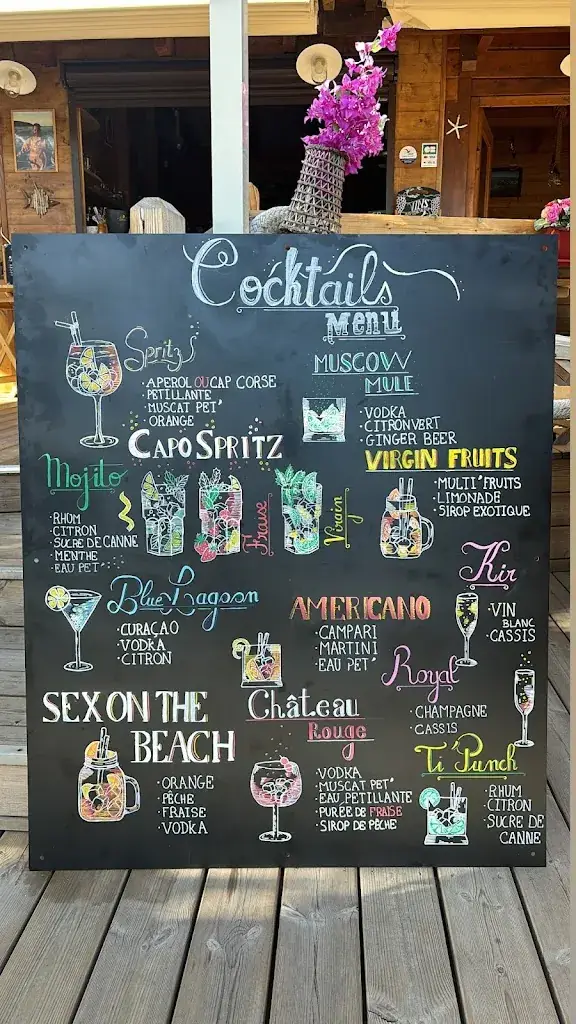 Cocktails
Menu
Spritz
· APEROL OU CAP CORSE
· PETILLANTE
· MUSCAT PET'
· ORANGE
CAPO SPRITZ
MUSCOW
MULE
· VODKA
· CITRON VERT
· GINGER BEER
Mojito
· RHUM
· CITRON
· SUCRE DE CANNE
· MENTHE
· EAU PET'
Fraise
Virgin
VIRGIN FRUITS
· MULTI'FRUITS
· LIMONADE
· SIROP EXOTIQUE
Blue Lagoon
· CURAÇAO
· VODKA
· CITRON
AMERICANO
· CAMPARI
· MARTINI
· EAU PET'
Kir
· VIN
BLANC
· CASSIS
Royal
· CHAMPAGNE
· CASSIS
SEX ON THE
BEACH
· ORANGE
· PÊCHE
· FRAISE
· VODKA
Château
Rouge
· VODKA
· MUSCAT PET'
· EAU PETILLANTE
· PURÉE DE FRAISE
· SIROP DE PÊCHE
Ti'Punch
· RHUM
· CITRON
· SUCRE DE
CANNE